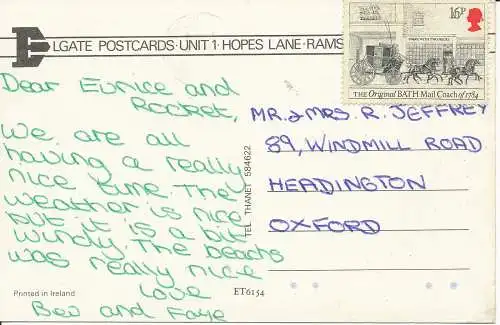 ELGATE POSTCARDS · UNIT 1 · HOPES LANE · RAMS
16P
THE Original BATH Mail Coach of 1784
Dear Eunice and
Rocket,
We are all
having a really
nice time. The
weather is nice
but it is a bit
windy. The beachs
was really nice
love
Bev and Faye
TEL THANET 584622
MR. & MRS. R. JEFFREY
89, WINDMILL ROAD
HEADINGTON
OXFORD
Printed in Ireland
ET6154